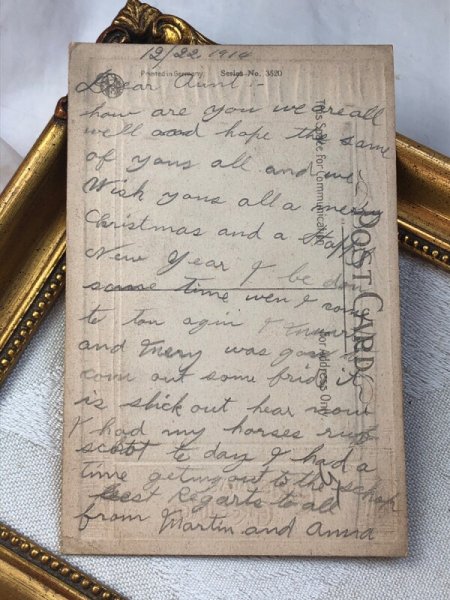 12/22 1914
Printed in Germany. Series No. 3520
Dear Aunt:-
how are you we are all
well and hope the same
of yous all and we
Wish yous all a merry
Christmas and a Happy
New Year I be down
some time wen I come
to ton agin
and Mery was going to
com out some frid it
is slick out hear now
I had my horses ruff
scott to day I had a
time geting out to the schop
best Regarts to all
from Martin and Anna
This Space for Communication
POST CARD
for Address Only